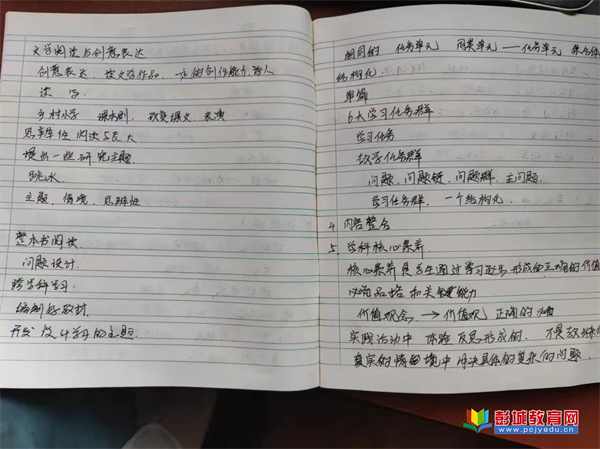 文学阅读与创意表达
创意表达、读文学作品、一定的创作能力、诗人
读 写
乡村小学 课本剧、改变课文 表演
思辨性阅读与表达
提出一些研究主题
跳水
主题、情境、思辨性
整本书阅读
问题设计
跨学科学习
编制好教材
开发 学习的主题
相同的 任务单元 同类单元——任务单元
结构化
单篇
6大学习任务群
学习任务
教学任务群
问题、问题链、问题群、主问题
学习任务群、一个结构化
4. 内容整合
5. 学科核心素养
核心素养是学生通过学习逐步形成的正确的价值
必备品格和关键能力
价值观念→价值观 正确的
实践活动中 体验 反思形成的、不是
真实的情境中解决具体的复杂的问题.
彭城教育网
www.pcjyedu.cn